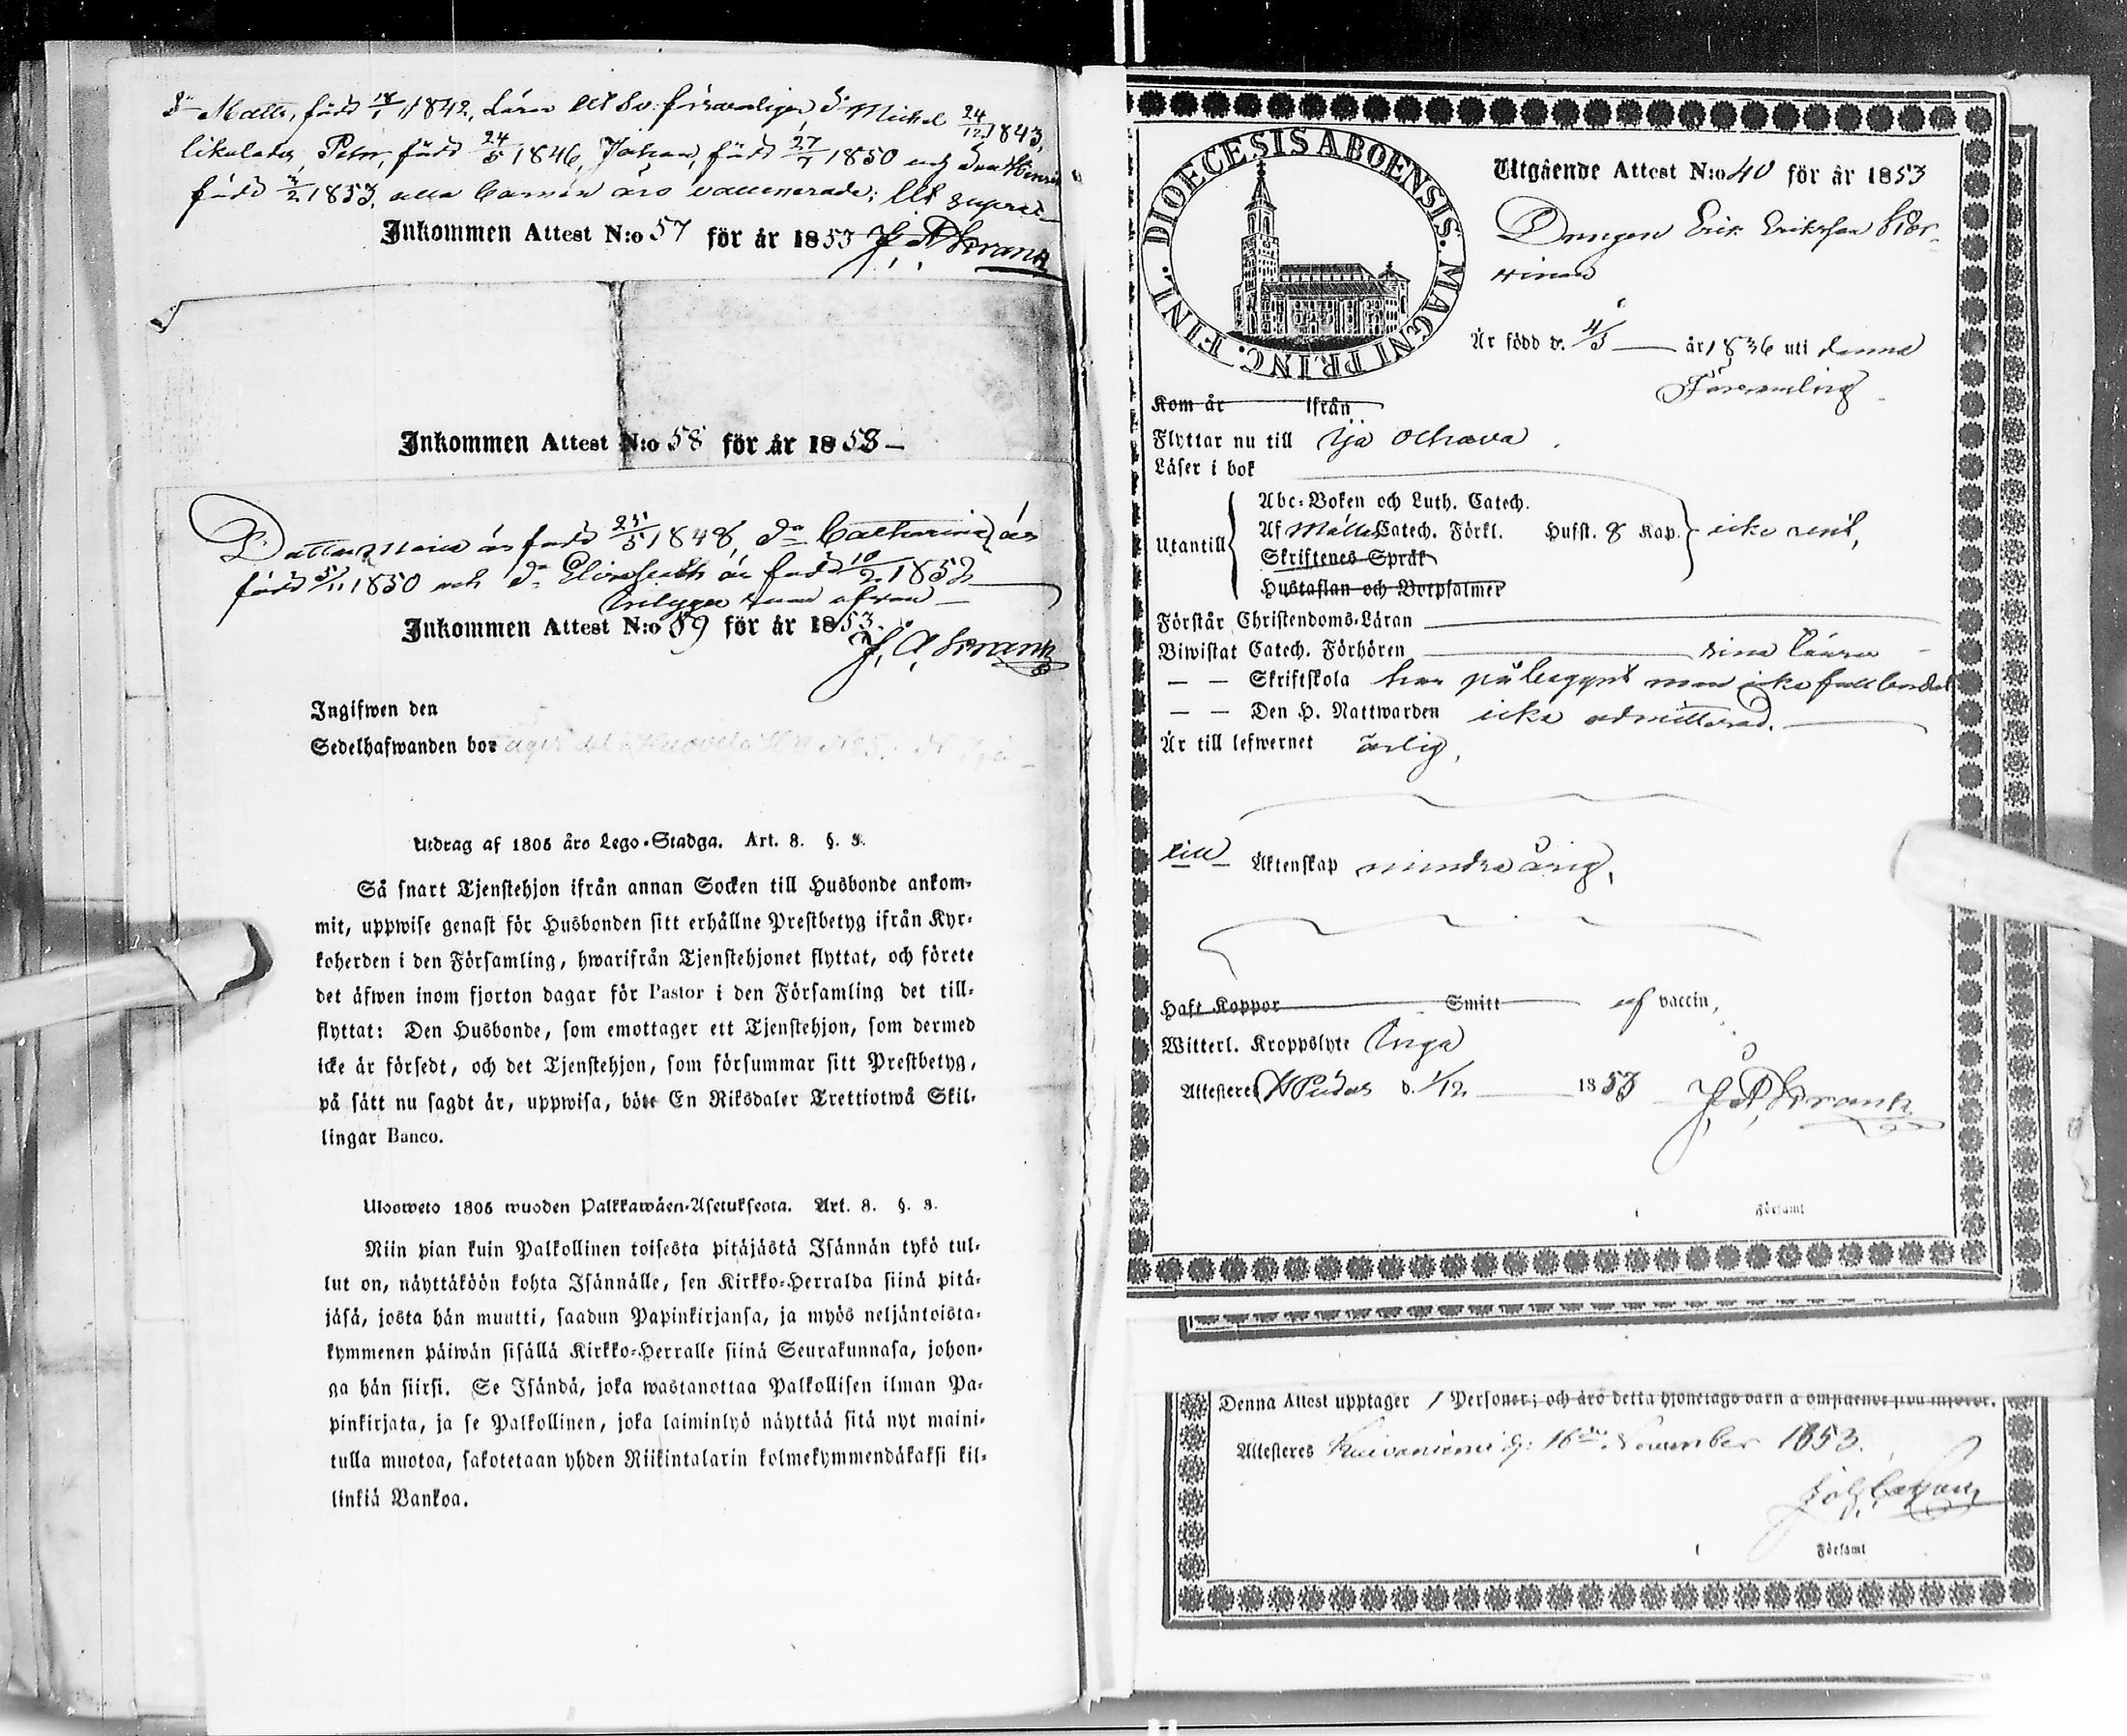 Sn Matts, född 14/1 1842, läser det Sv. försvarligen Sn Michel 24/12 1843,
likaledes, Petter, född 24/5 1846, Johan, född 27/7 1850 och
född 2/2 1853, alla barnen äro vaccinerade; Ut supra
Inkommen Attest N:o 57 för år 1853 J. A. Krank
Inkommen Attest N:o 58 för år 1853
Dottren Maria är född 25/5 1848, da Catharina är
född 5/11 1850 och da Elisabeth är född 10/2 1853
ofvan
Inkommen Attest N:o 59 för år 1853.
J. A. Krank
Ingifwen den
Sedelhafwanden bor
Utdrag af 1805 års Lego-Stadga. Art. 8. §. 3.
Så snart Tjenstehjon ifrån annan Socken till Husbonde ankom-
mit, uppwise genast för Husbonden sitt erhållne Prestbetyg ifrån Kyr-
koherden i den Församling, hwarifrån Tjenstehjonet flyttat, och förete
det äfwen inom fjorton dagar för Pastor i den Församling det till-
flyttat: Den Husbonde, som emottager ett Tjenstehjon, som dermed
icke är försedt, och det Tjenstehjon, som försummar sitt Prestbetyg,
på sätt nu sagdt är, uppwisa, böte En Riksdaler Trettiotwå Skil-
lingar Banco.
Ulosweto 1805 wuoden Palkkawäen-Asetuksesta. Art. 8. §. 3.
Niin pian kuin Palkollinen toisesta pitäjästä Isännän tykö tul-
lut on, näyttäköön kohta Isännälle, sen Kirkko-Herralda siinä pitä-
jäsä, josta hän muutti, saadun Papinkirjansa, ja myös neljäntoista-
kymmenen päiwän sisällä Kirkko-Herralle siinä Seurakunnasa, johon-
ga hän siirsi. Se Isändä, joka wastanottaa Palkollisen ilman Pa-
pinkirjata, ja se Palkollinen, joka laiminlyö näyttää sitä nyt maini-
tulla muotoa, sakotetaan yhden Riikintalarin kolmekymmendäkaksi kil-
linkiä Bankoa.
DIOECESIS ABOENSIS. MAGNI PRINC. FINL.
Utgående Attest N:o 40 för år 1853
Drengen Erik Eriksson
Är född d. 4/5 år 1836 uti denna
Församling
Kom år ifrån
Flyttar nu till Ijo Olhava.
Läser i bok
Abc-Boken och Luth. Catech.
Utantill Af Möllers Catech. Förkl. Husst. 8 Kap. icke rent,
Skriftenes Språk
Hustaflan och Botpsalmer
Förstår Christendoms-Läran
Biwistat Catech. Förhören sina läsor
— — Skriftskola har påbegynt men icke fullbordat
— — Den H. Nattwarden icke admitterad.
Är till lefwernet ärlig,
till Äktenskap minderårig,
Haft Koppor Smitt af vaccin,
Witterl. Kroppslyte Inga
Attesteres Pudas d. 1/12 1853 J. A. Krank
Församl
Denna Attest upptager 1 Personer; och äro detta hjonelags barn å omstående sida införde.
Attesteres Kuivaniemi d: 16de November 1853.
Församl